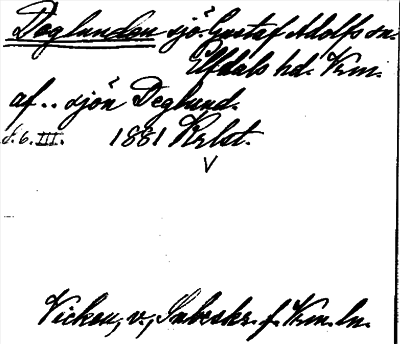 Deglunden sjö. Gustaf Adolfs sn.
Elfdals hd. Vrm.
af.. sjön Deglund.
S. 6. III. 1881 Krlst.
V
Vicken, v., Inbeskr. f. Vrm. ln.